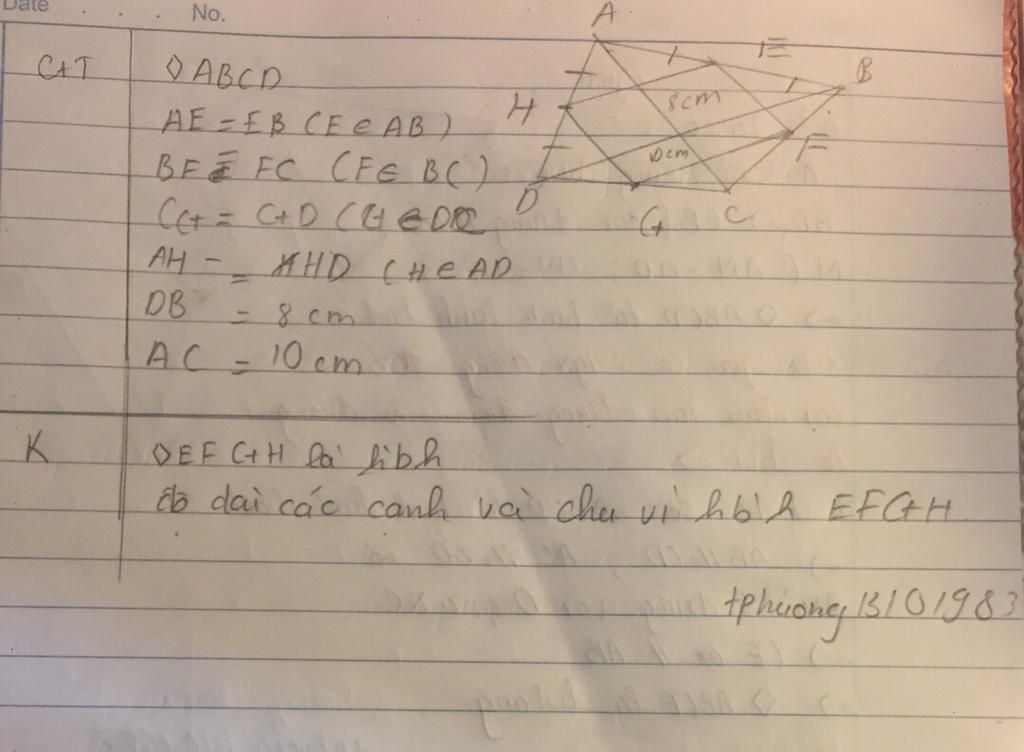 Date . . . No.
GT ◊ABCD
AE = EB (E ∈ AB)
BF = FC (F ∈ BC)
CG = GD (G ∈ DC
AH = HD (H ∈ AD
DB = 8 cm
AC = 10 cm
K ◊EFGH là hbh
độ dài các cạnh và chu vi hbh EFGH
tphuong 13101983
A
E
B
H
8cm
F
10cm
D
G
C